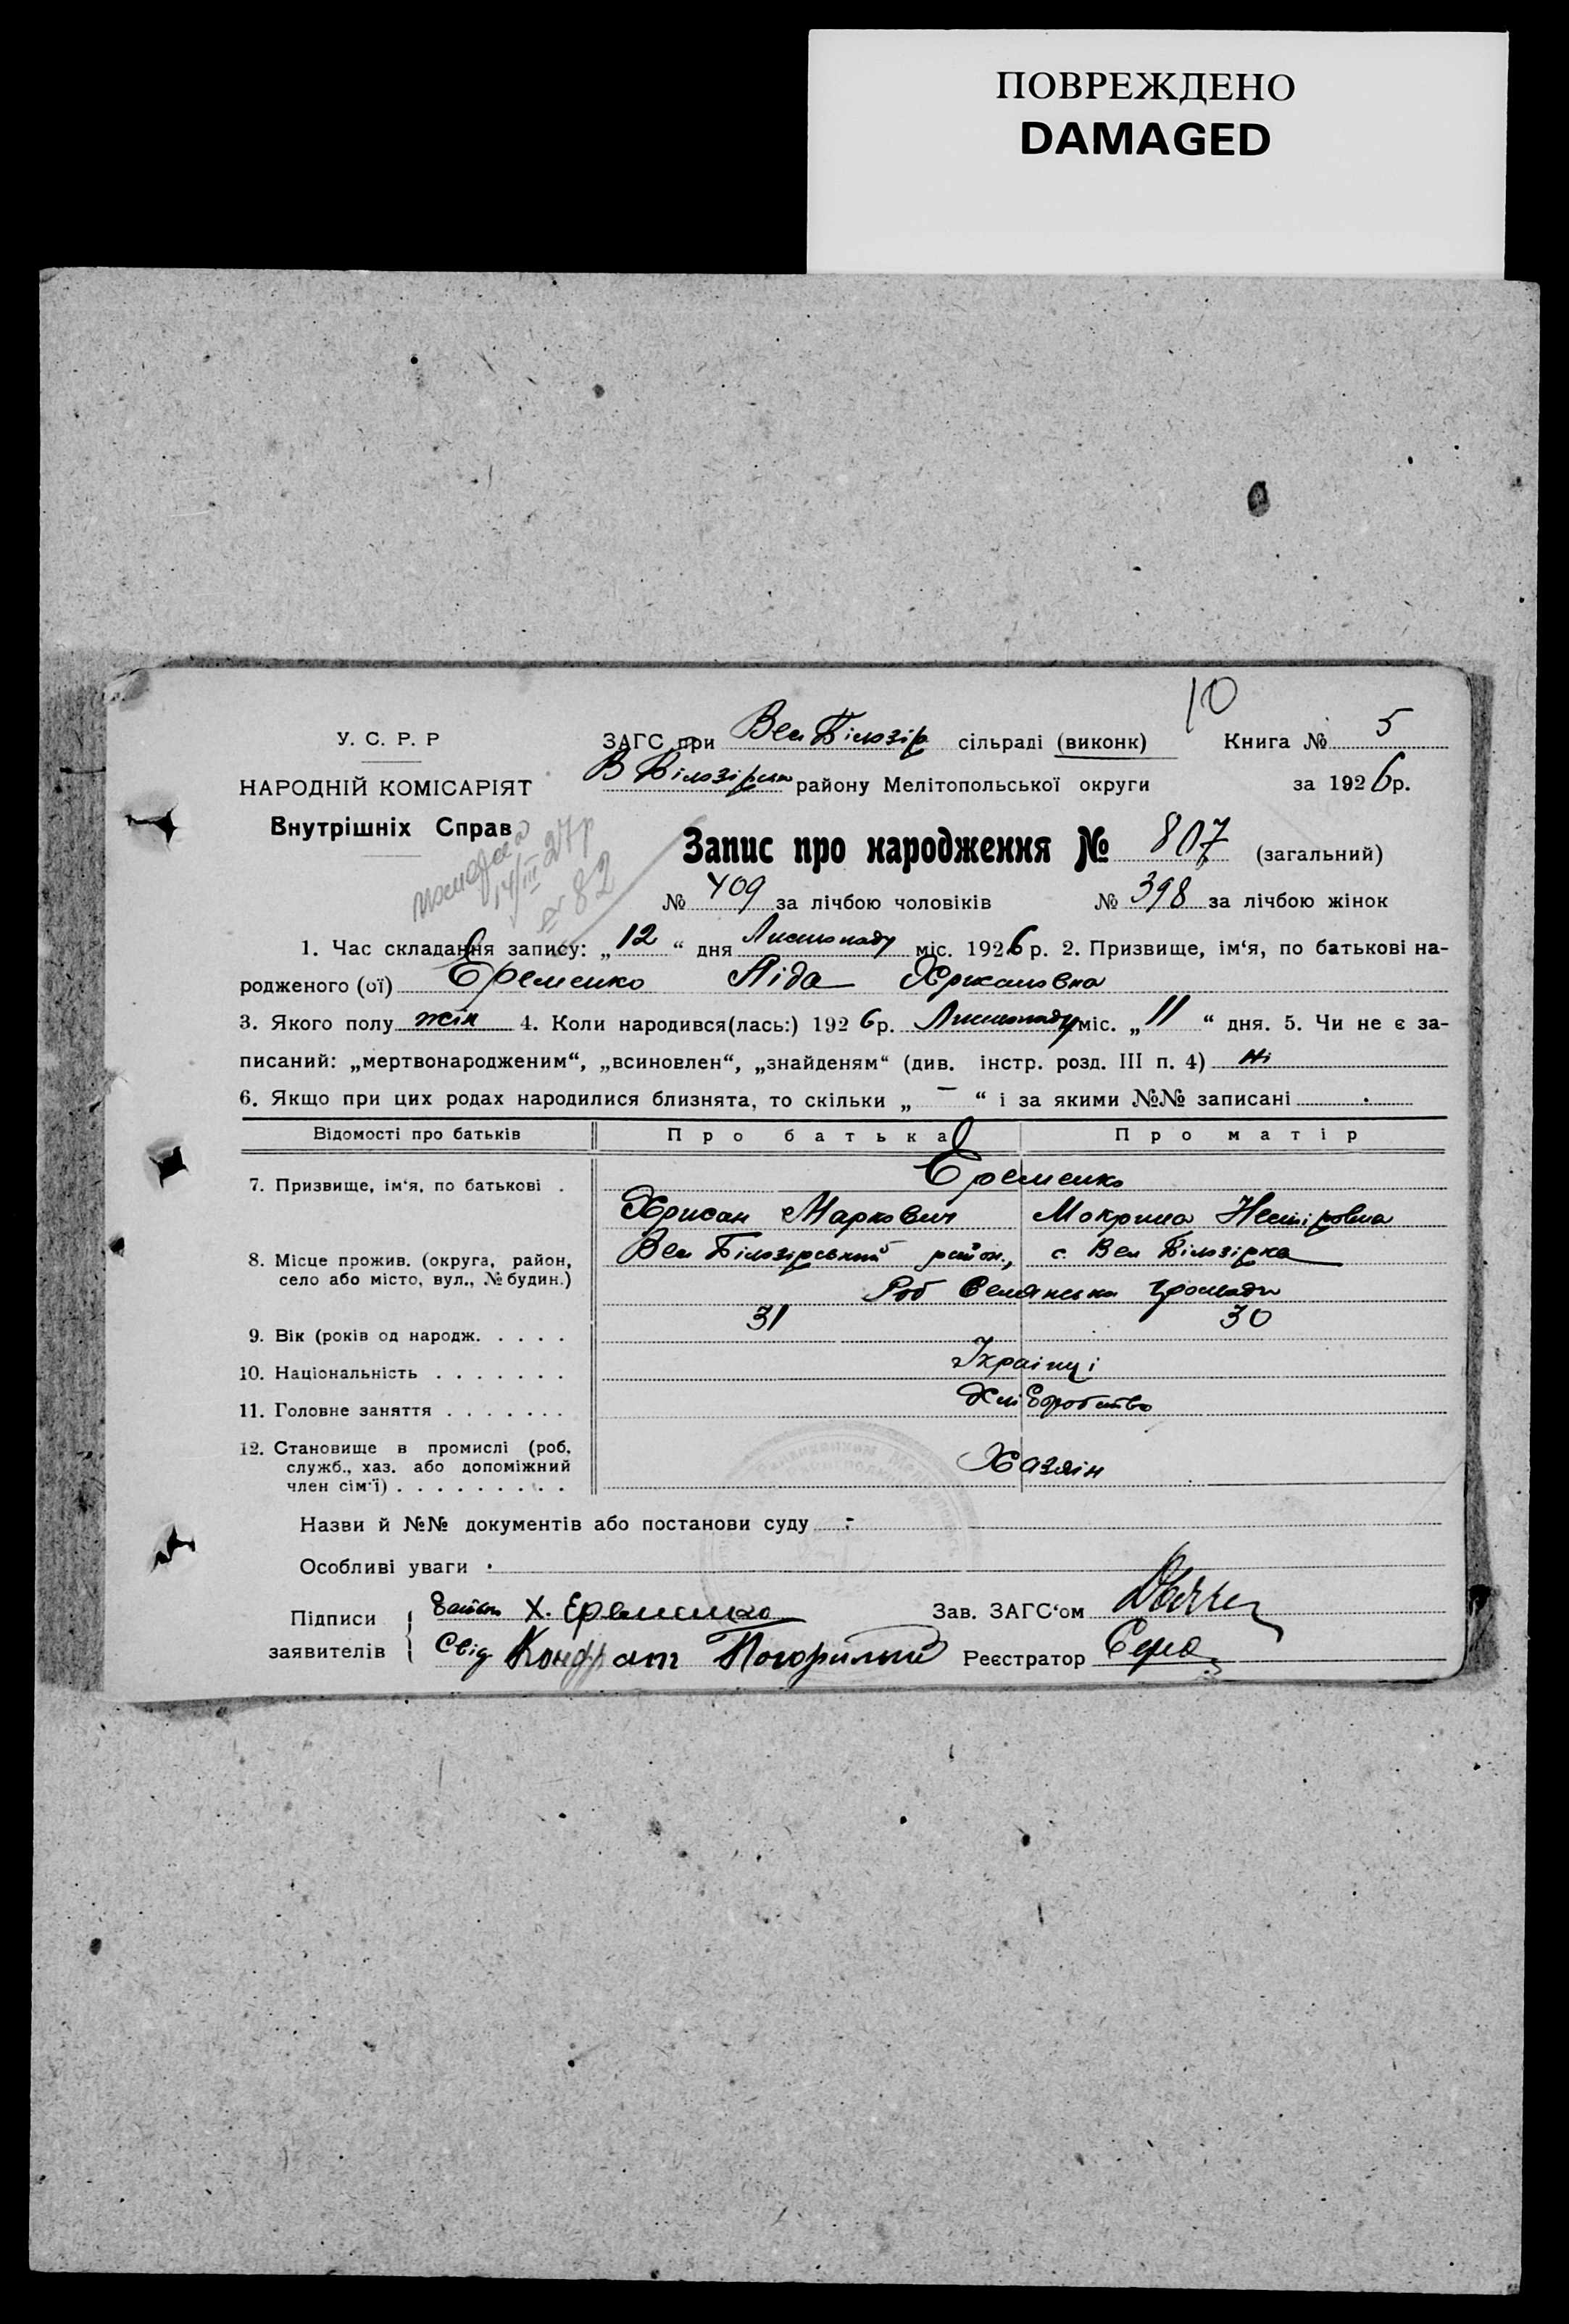 ПОВРЕЖДЕНО
DAMAGED
10
У. С. Р. Р
НАРОДНІЙ КОМІСАРІЯТ
Внутрішніх Справ
ЗАГС при Вел Білозір сільраді (виконк) Книга № 5
В Білозірка району Мелітопольської округи за 1926р.
14/III 27р
№ 82
Запис про народження № 807 (загальний)
№ 409 за лічбою чоловіків № 398 за лічбою жінок
1. Час складання запису: „12“ дня Листопаду міс. 1926 р. 2. Призвище, ім‘я, по батькові на-
родженого (ої) Еременко Ліда Хрисановна
3. Якого полу жін 4. Коли народився(лась:) 1926р. Листопаду міс. „11“ дня. 5. Чи не є за-
писаний: „мертвонародженим“, „всиновлен“, „знайденям“ (див. інстр. розд. III п. 4) ні
6. Якщо при цих родах народилися близнята, то скільки „ – “ і за якими №№ записані
Відомості про батьків Про батька Про матір
7. Призвище, ім‘я, по батькові . Еременко
Хрисан Маркович Мокрина Нестіровна
8. Місце прожив. (округа, район, село або місто, вул., № будин.) Вел Білозірський район, с. Вел Білозірка
Роб Селянська громади
9. Вік (років од народж. . . . . 31 30
10. Національність . . . . . . . Українці
11. Головне заняття . . . . . . . Хліборобство
12. Становище в промислі (роб. служб., хаз. або допоміжний член сім‘ї) . . . . . . . . . Хазяін
Назви й №№ документів або постанови суду -
Особливі уваги
Підписи заявителів
Х. Еременко Зав. ЗАГС‘ом
Свід Кондрат Погорилий Реєстратор